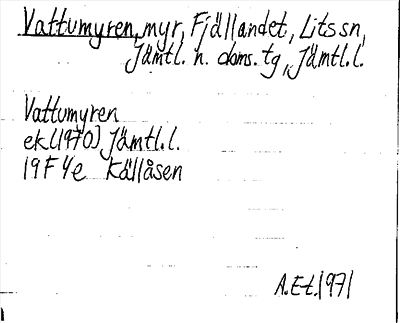 Vattumyren, myr, Fjällandet, Lits sn,
Jämtl. n. doms. tg, Jämtl.l.
Vattumyren
ek (1970) Jämtl.l.
19F 4e Källåsen
A.Et. 1971